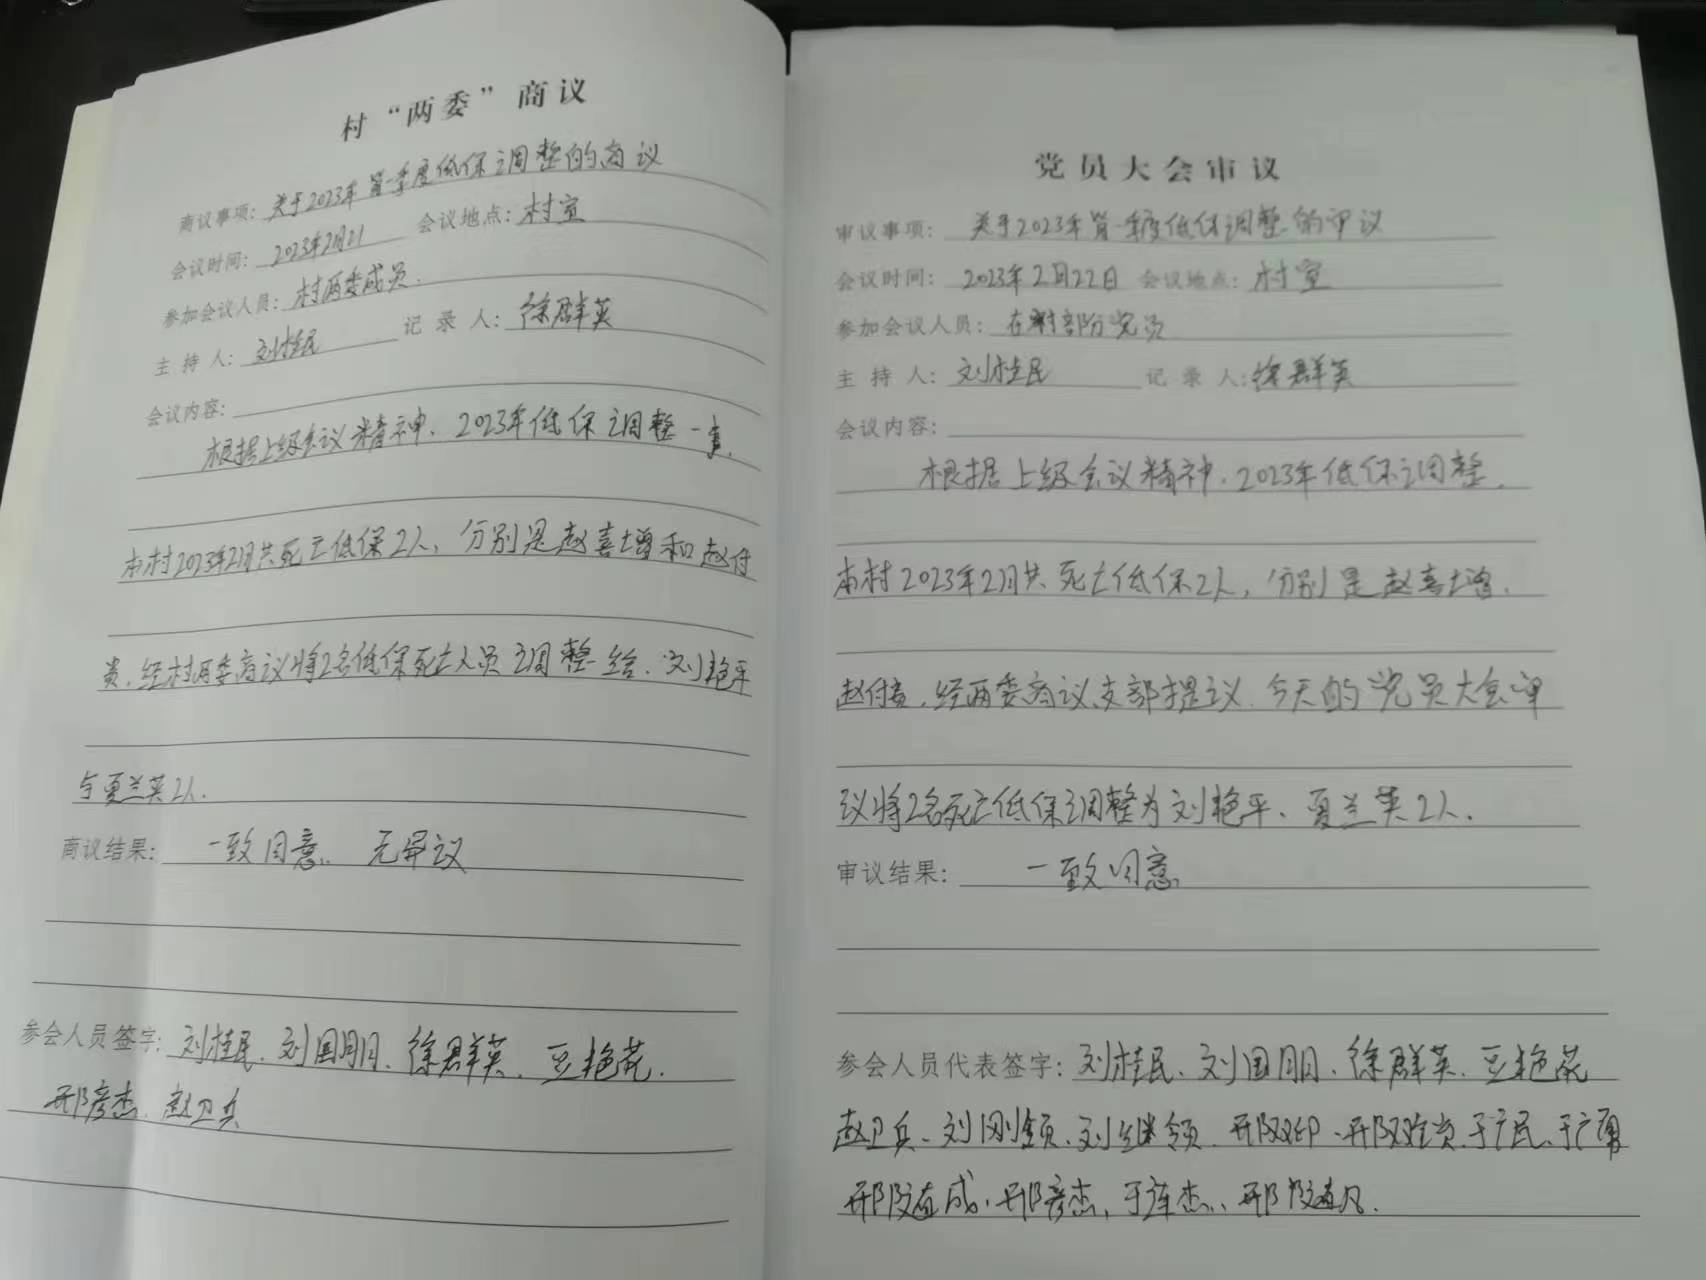 村“两委”商议
商议事项：关于2023年第一季度低保调整的商议
会议时间：2023年2月21 会议地点：村室
参加会议人员：村两委成员.
主持人：刘桂民 记录人：徐群英
会议内容：
根据上级会议精神、2023年低保调整一事.
本村2023年2月共死亡低保2人，分别是赵喜增和赵付
贵，经村两委商议将2名低保死亡人员调整给、刘艳平
与夏兰英2人.
商议结果：一致同意、无异议
参会人员签字：刘桂民、刘国朋、徐群英、豆艳花.
邢彦杰、赵卫兵
党员大会审议
审议事项：关于2023年第一季度低保调整的审议
会议时间：2023年2月22日 会议地点：村室
参加会议人员：在村部分党员
主持人：刘桂民 记录人：徐群英
会议内容：
根据上级会议精神、2023年低保调整.
本村2023年2月共死亡低保2人，分别是赵喜增.
赵付贵，经两委商议、支部提议、今天的党员大会审
议将2名死亡低保调整为刘艳平、夏兰英2人.
审议结果：一致同意
参会人员代表签字：刘桂民、刘国朋、徐群英、豆艳花
赵卫兵、刘刚领、刘继领、于广民、于广勇
邢彦杰，于连杰、